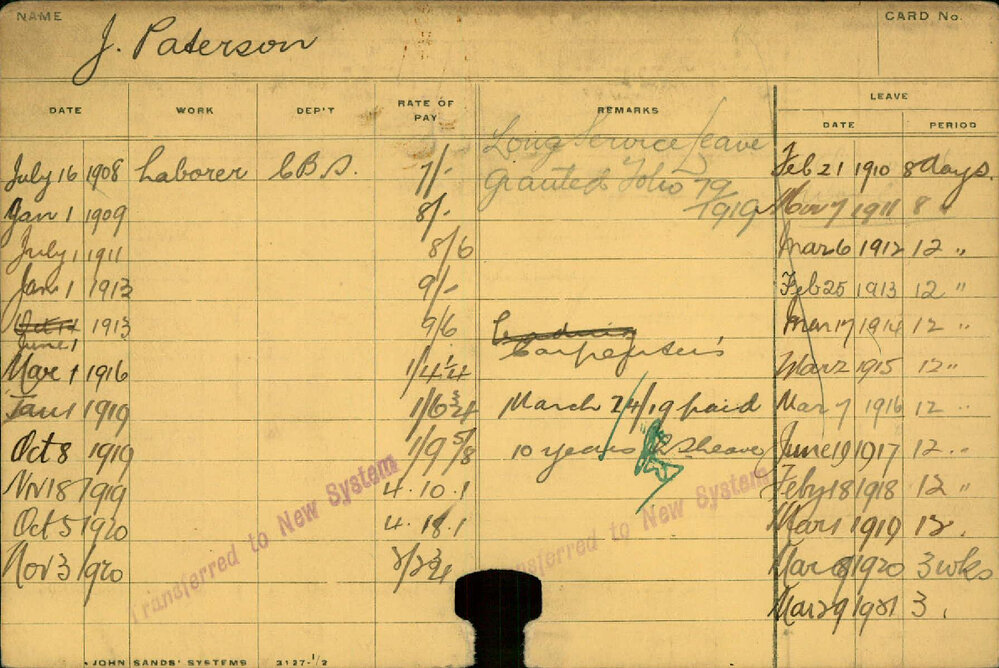 NAME
J. Paterson
CARD No.
DATE WORK DEP'T RATE OF PAY REMARKS LEAVE
DATE PERIOD
Long Service Leave
July 16 1908 Laborer C.B.S. 7/- Granted Folio 79 Feb 21 1910 8 days.
Jan 1 1909 8/- 1919 Nov 7 1911 8 "
July 1 1911 8/6 Mar 6 1912 12 "
Jan 1 1913 9/- Feb 25 1913 12 "
Oct 1913 9/6 Leading Mar 17 1914 12 "
June 1 Carpenters
Mar 1 1916 1/4 1/4 Mar 2 1915 12 "
Jan 1 1919 1/6 3/4 March 24/19 paid Mar 7 1916 12 "
Oct 8 1919 1/9 5/8 10 years leave June 19 1917 12 "
Nov 18 1919 4.10.1 Feby 18 1918 12 "
Oct 5 1920 4.18.1 Mar 1 1919 12 .
Nov 3 1920 2/2 3/4 Mar 8 1920 3 wks
Mar 29 1921 3 .
Transferred to New System
Transferred to New System
JOHN SANDS' SYSTEMS 3127-1/2